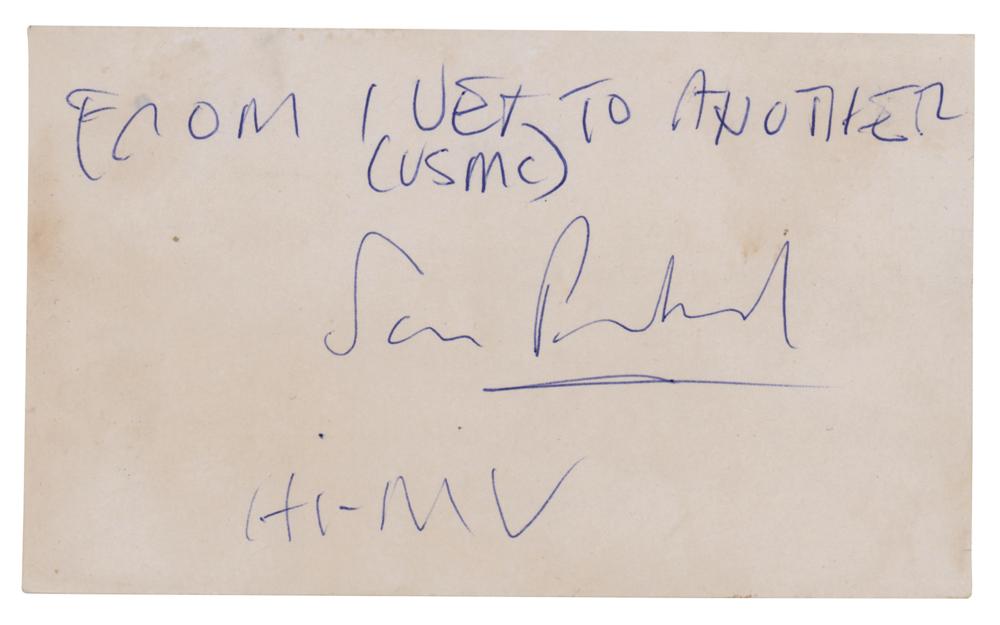 FROM 1 VET TO ANOTHER
(USMC)
Sam Peckinpah
Hi-MV